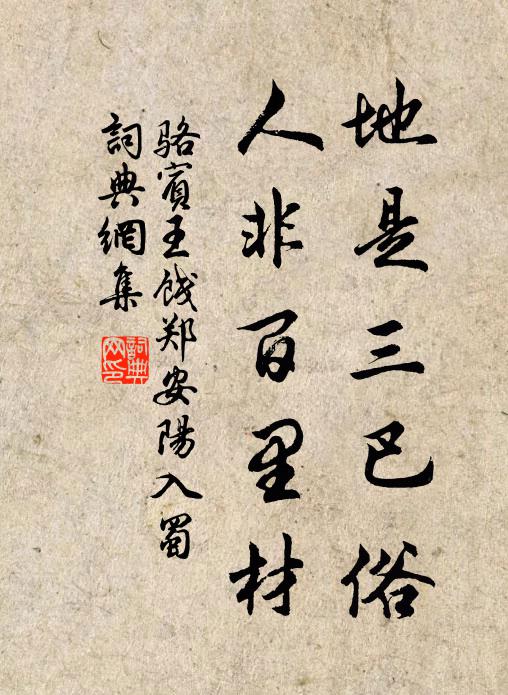 地是三巴俗
人非百里材
骆賓王餞郑安陽入蜀
詞典網集
詞典网印